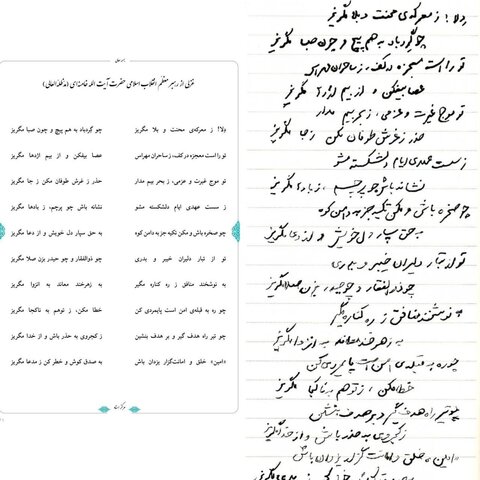 غزلی از رهبر معظم انقلاب اسلامی حضرت آیت الله خامنه‌ای (مدظله‌العالی)
دلا! ز معرکه‌ی محنت و بلا مگریز
چو گردباد به هم پیچ و چون صبا مگریز
تو را است معجزه در کف، ز ساحران مهراس
عصا بیفکن و از بیم اژدها مگریز
تو موج غیرت و عزمی، ز بحر بیم مدار
حذر ز غرش طوفان مکن ز جا مگریز
ز سست عهدی ایام دلشکسته مشو
نشانه باش چو پرچم، ز بادها مگریز
چو صخره باش و مکن تکیه جز به دامن کوه
به حق سپار دل خویش و از دعا مگریز
تو از تبار دلیران خیبر و بدری
چو ذوالفقار و چو حیدر بزن صلا مگریز
به نوشخند منافق ز ره کناره مگیر
به زهرخند معاند به انزوا مگریز
چو ره به قبله‌ی امن است پایمردی کن
خطا مکن، ز توهم به ناکجا مگریز
چو تیر راه هدف گیر و بر هدف بنشین
ز کجروی به حذر باش و از خدا مگریز
«امین» خلق و امانت‌گزار یزدان باش
به صدق کوش و خطر کن ز مدعا مگریز
دلا! ز معرکه‌ی محنت و بلا مگریز
چو گردباد به هم پیچ و چون صبا مگریز
تو را است معجزه در کف، ز ساحران مهراس
عصا بیفکن و از بیم اژدها مگریز
تو موج غیرت و عزمی، ز بحر بیم مدار
حذر ز غرش طوفان مکن ز جا مگریز
ز سست عهدی ایام دلشکسته مشو
نشانه باش چو پرچم، ز بادها مگریز
چو صخره باش و مکن تکیه جز به دامن کوه
به حق سپار دل خویش و از دعا مگریز
تو از تبار دلیران خیبر و بدری
چو ذوالفقار و چو حیدر بزن صلا مگریز
به نوشخند منافق ز ره کناره مگیر
به زهرخند معاند به انزوا مگریز
چو ره به قبله‌ی امن است پایمردی کن
خطا مکن، ز توهم به ناکجا مگریز
چو تیر راه هدف گیر و بر هدف بنشین
ز کجروی به حذر باش و از خدا مگریز
«امین» خلق و امانت گزار یزدان باش